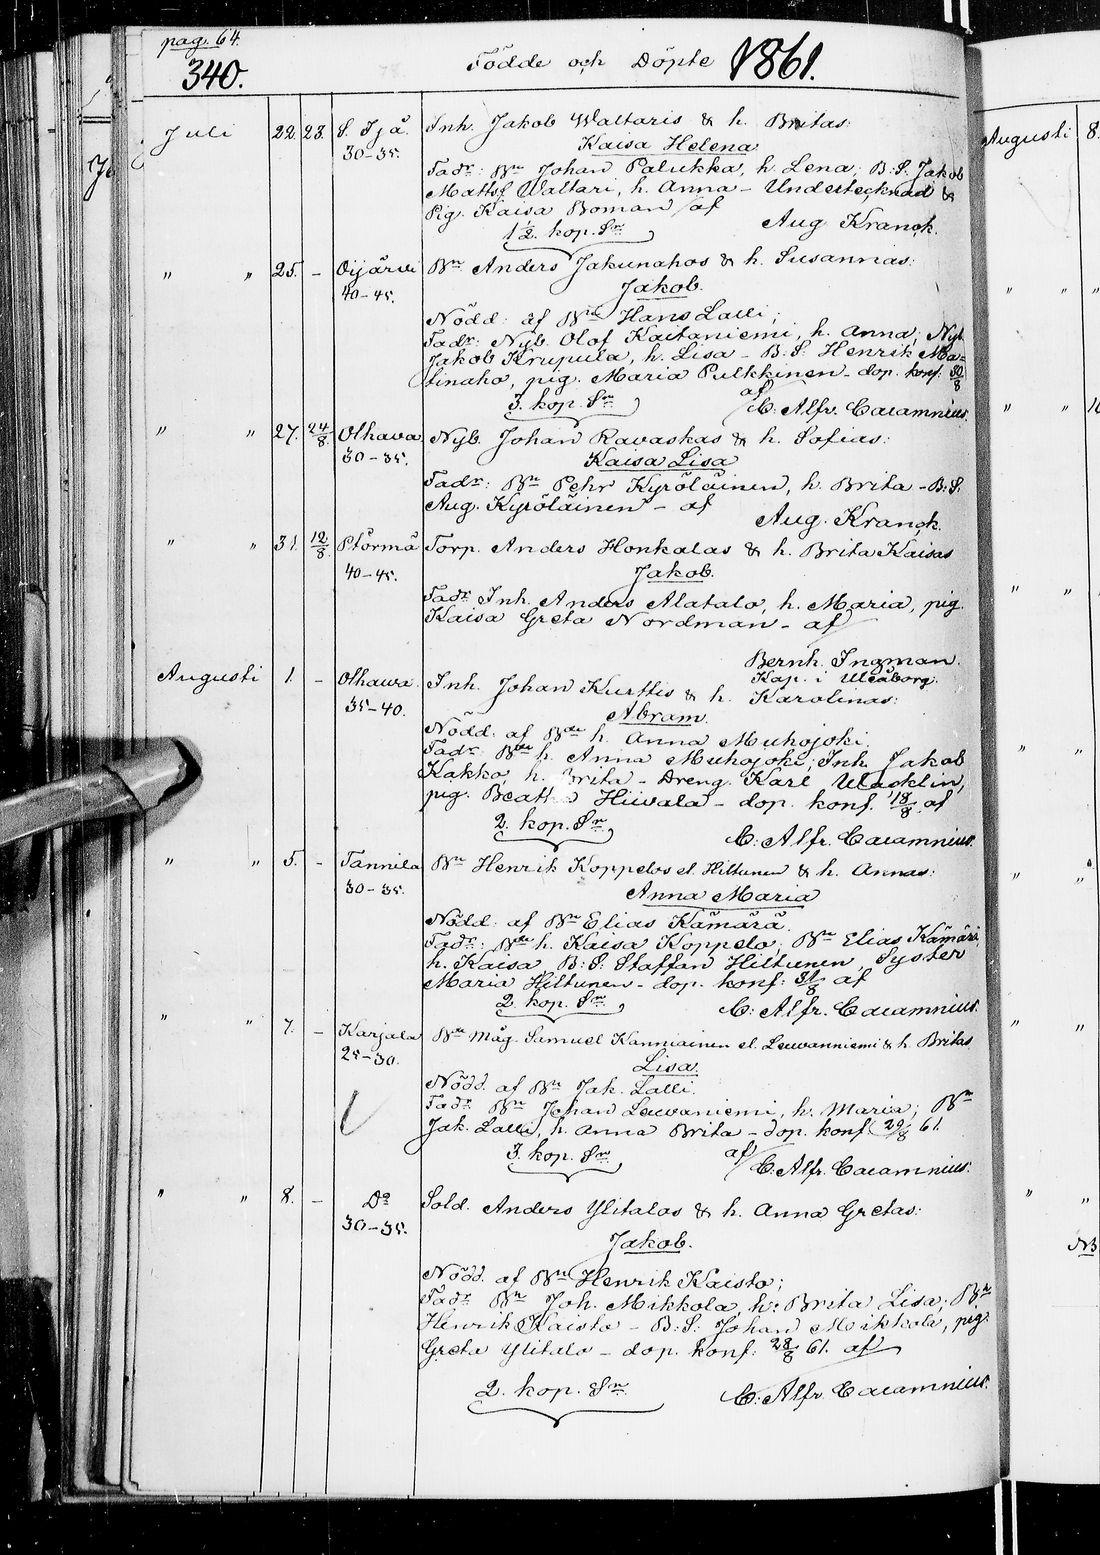 pag. 64.
340.
Födde och Döpte 1861.
Juli 22. 23. S. Ijå. 30-35. Inh. Jakob Waltaris & h. Britas:
Kaisa Helena
Fadr: Bn Johan Palukka, h. Lena; B. S. Jakob
Mattsf Waltari, h. Anna - Undertecknad &
Pig. Kaisa Boman af
1½. kop. Sr Aug. Kranck.
" " 25. - Oijärvi 40-45. Bn Anders Jakunahos & h. Susannas:
Jakob.
Nödd: af Bn Hans Lalli;
Fadr: Nyb. Olof Kaitaniemi, h. Anna; Nyb.
Jakob Krupula, h. Lisa - B. S. Henrik Ma-
tinaho, pig. Maria Pulkkinen - dop. konf: 30/8
af
3. kop. Sr C: Alfr. Cajamnius.
" " 27. 24/8. Olhava 30-35. Nyb. Johan Ravaskas & h. Sofias:
Kaisa Lisa
Fadr: Bn Pehr Kyröläinen, h. Brita - B: S.
Aug. Kyröläinen - af
Aug. Kranck.
" " 31. 12/8. Ptörmä 40-45. Torp. Anders Honkalas & h. Brita Kaisas
Jakob.
Fadr Inh. Anders Alatalo, h. Maria, pig.
Kaisa Greta Nordman - af
Bernh. Ingman.
Kap. i Uleåborg.
Augusti 1. - Olhawa. 35-40. Inh. Johan Kurttis & h. Karolinas:
Abram.
Nödd: af Bde h. Anna Muhojoki.
Fadr: Bde h. Anna Muhojoki; Inh. Jakob
Kakko, h. Brita - Dreng. Karl Wasklin,
pig. Beatha Hiivala - dop. konf. 18/8. af
2. kop. Sr. C: Alfr. Cajamnius.
" " 5. - Tannila 30-35. Bn Henrik Koppelos el. Hiltunen & h. Annas:
Anna Maria
Nödd: af Bn Elias Kämärä.
Fadr: Bde h. Kaisa Koppelo; Bn Elias Kämärä
h. Kaisa B: S: Staffan Hiltunen, Syster
Maria Hiltunen - dop. konf: 31/8 af
2. kop. Sr. C: Alfr. Cajamnius.
" " 7. - Karjala 25-30. Bn Måg. Samuel Kanniainen el. Leuvanniemi & h. Britas.
Lisa.
Nödd. af Bn Jak. Lalli.
Fadr Bn Johan Leuvaniemi, h. Maria; Bn
Jak. Lalli, h. Anna Brita - dop. konf. 29/8 61.
af
3. kop. Sr. C: Alfr. Cajamnius.
" " 8. - Do 30-35. Sold. Anders Ylitalos & h. Anna Gretas:
Jakob.
Nödd. af Bn Henrik Kaisto;
Fadr Bn Joh. Mikkola, h: Brita Lisa; Bn
Henrik Kaisto - B: S: Johan Mikkola, pig.
Greta Ylitalo - dop. konf: 28/8 61. af
2. kop. Sr. C: Alfr. Cajamnius.
Augusti 8.